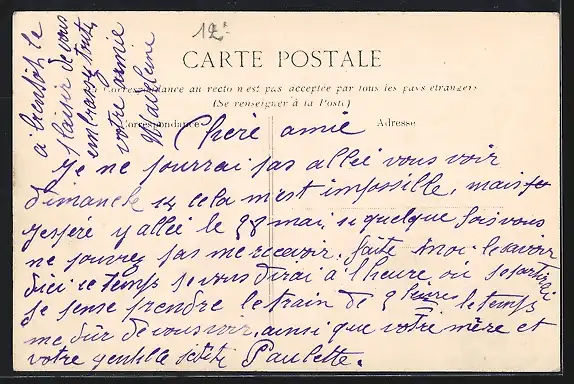 12-
CARTE POSTALE
Correspondance au recto n'est pas acceptée par tous les pays étrangers
(Se renseigner à la Poste)
Correspondance
Adresse
Cheré amie
Je ne pourrai pas allée vous voir
dimanche 14 cela m'est impossible, mais je
jespéré y allée le 28 mai, si quelque fois vous
ne pouvez pas me recevoir. faite moi le savoir
dici ce temps je vous dirai à l'heure où je partirai
je pense prendre le train de 9 heures le temps
me dur de vous voir, ainsi que votre mère et
votre gentille petite Paulette.
à bientôt le
plaisir de vous
embrassez tout
votre amie
Madeleine